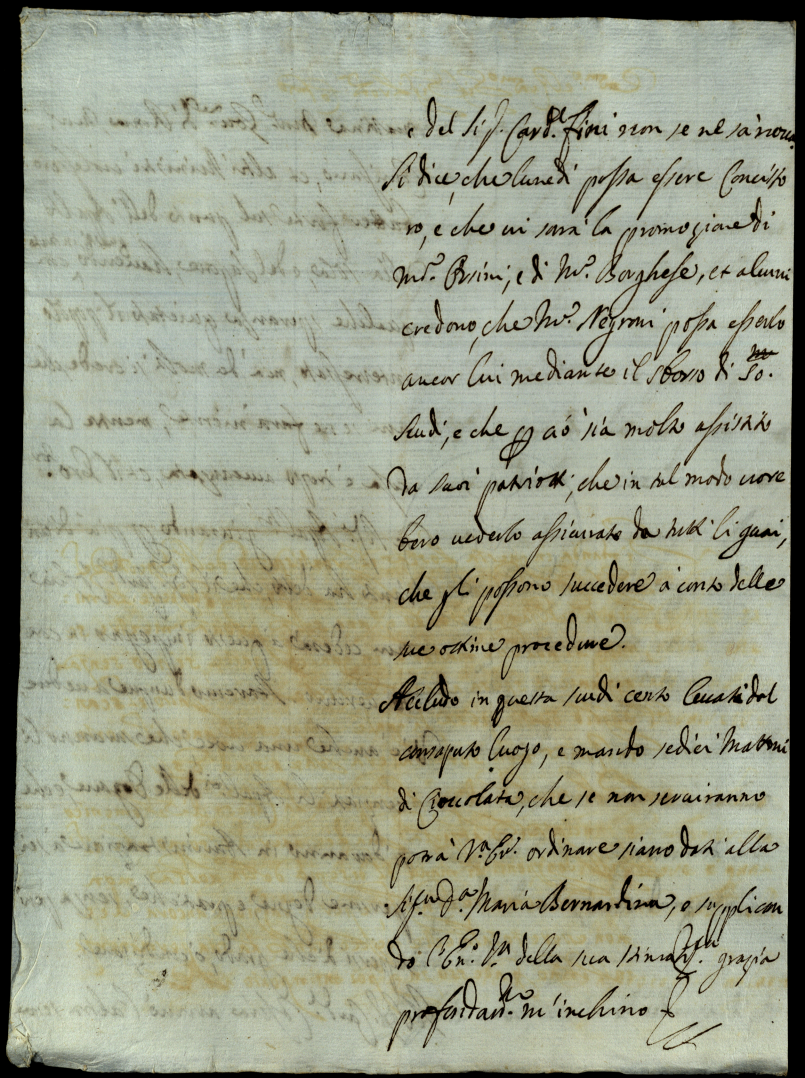 e del Sig.r Card.l Fini non se ne sà nova.
Si dice, che lunedi possa essere Concisto
ro, e che vi sarà la promozione di
Mr. Orsini, e di Mr. Borghese, et alcuni
credono, che Mr. Negroni possa esserlo
ancor lui mediante il sborso di 50.m
scudi, e che p ciò sia molto assistito
da suoi patriotti, che in tal modo vore
bero vederlo assicurato da tutti li guai,
che gli possono succedere à conto delle
sue ottime procedure.
Accludo in questa scudi cento levati dal
consaputo luogo, e mando sedici Mattoni
di Cioccolata, che se non serviranno
potrà V.a En. ordinare siano dati alla
Sig.ra D.a Maria Bernardina, e supplican
do l'En.a V.a della sua grazia
profondam.te m'inchino